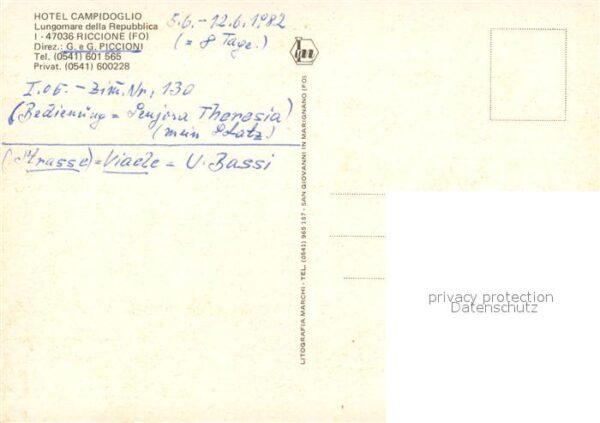 HOTEL CAMPIDOGLIO
Lungomare della Repubblica
I - 47036 RICCIONE (FO)
Direz.: G. e G. PICCIONI
Tel. (0541) 601 565
Privat. (0541) 600228
5.6. - 12.6.1982
(= 8 Tage.)
I. - Zim. Nr. 130
(Bedienung = Senjora Theresia)
(mein)
(Strasse) = Viaele = U. Bassi
LITOGRAFIA MARCHI - TEL. (0541) 965 157 - SAN GIOVANNI IN MARIGNANO (FO)
privacy protection
Datenschutz